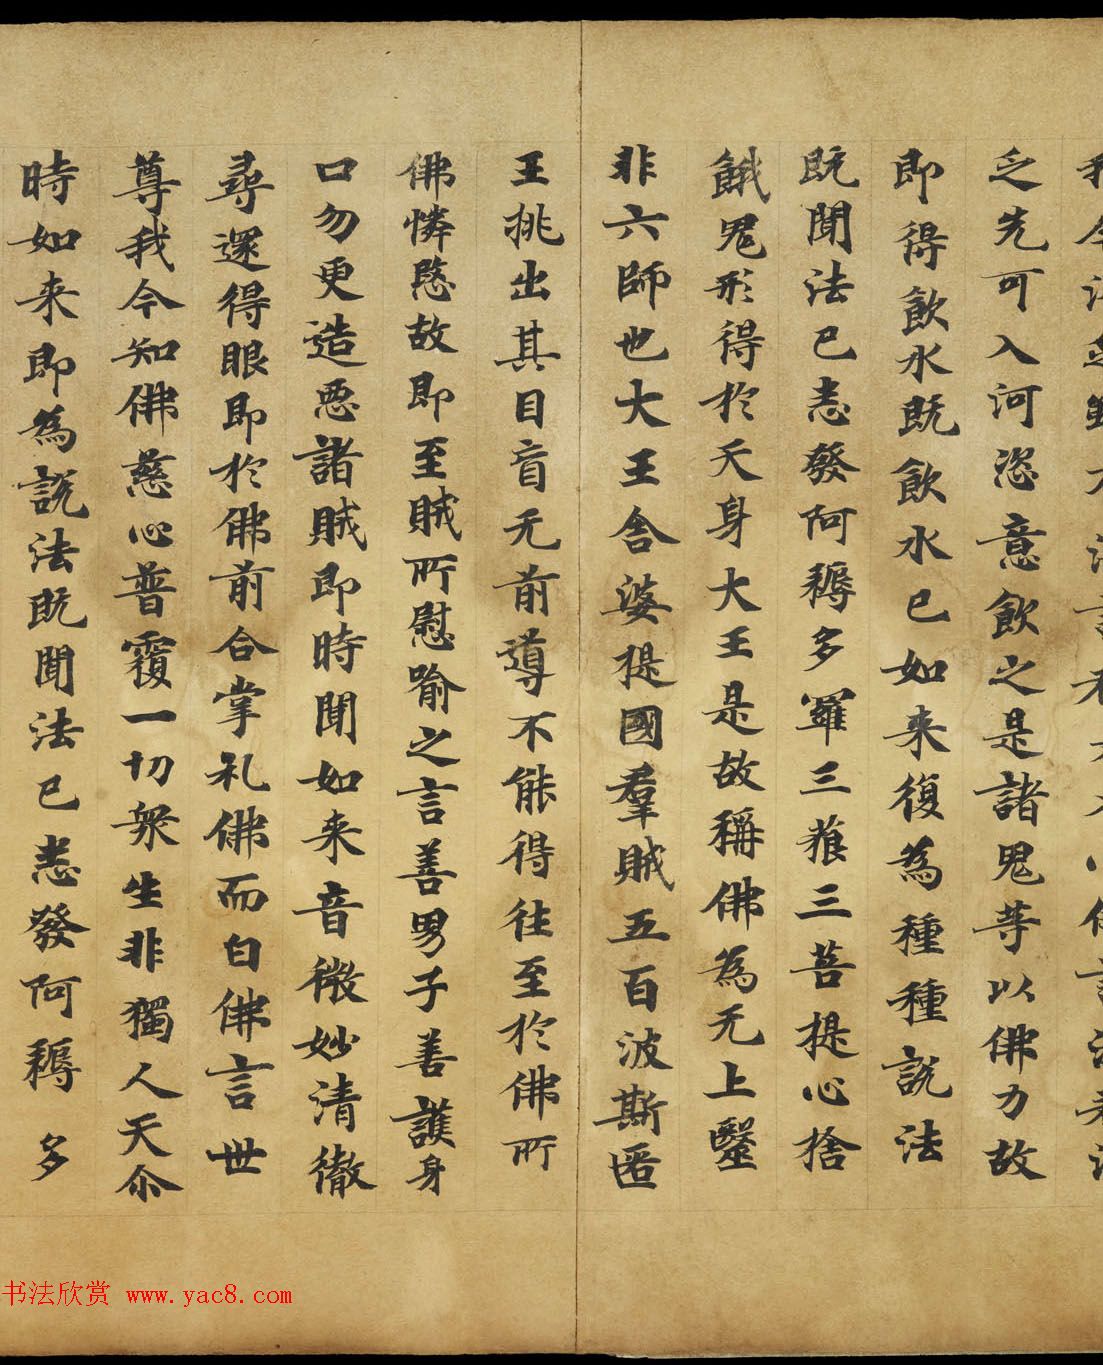 乏先可入河恣意飲之是諸鬼等以佛力故
即得飲水既飲水已如来復為種種說法
既聞法已悉發阿耨多羅三藐三菩提心捨
餓鬼形得於天身大王是故稱佛為无上毉
非六師也大王舍婆提國羣賊五百波斯匿
王挑出其目盲无前導不能得往至於佛所
佛憐愍故即至賊所慰喻之言善男子善護身
口勿更造惡諸賊即時聞如来音微妙清徹
尋還得眼即於佛前合掌礼佛而白佛言世
尊我今知佛慈心普覆一切衆生非獨人天尒
時如来即為說法既聞法已悉發阿耨多
书法欣赏 www.yac8.com